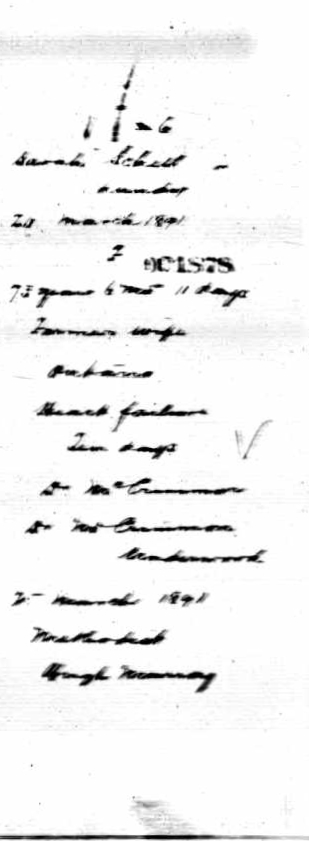 6
Sarah Schell
March 1891
F
001878
75 years 6 mos 11 days
Farmers wife
Ontario
Heart failure
Ten days
Dr McCrimmon
Dr McCrimmon
Underwood
March 1891
Methodist
Hugh Murray